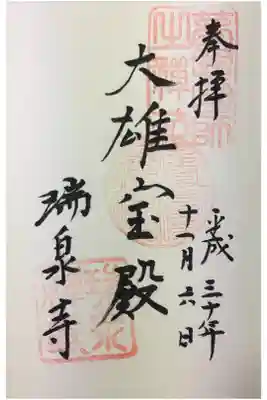 奉拝
平成三十年
十一月六日
大雄宝殿
瑞泉寺